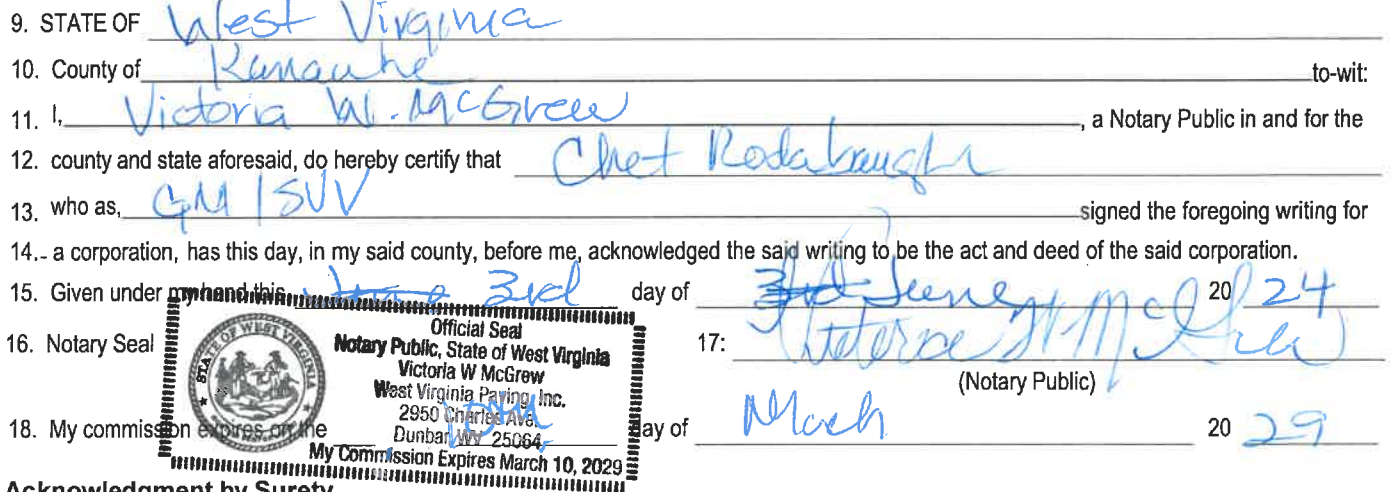 9. STATE OF West Virginia
10. County of Kanawha to-wit:
11. I, Victoria W. McGrew, a Notary Public in and for the
12. county and state aforesaid, do hereby certify that Chet Rodabaugh
13. who as, GM / SVV signed the foregoing writing for
14. a corporation, has this day, in my said county, before me, acknowledged the said writing to be the act and deed of the said corporation.
15. Given under my hand this 3rd day of June 20 24
16. Notary Seal 17: Victoria W McGrew
(Notary Public)
STATE OF WEST VIRGINIA
Official Seal
Notary Public, State of West Virginia
Victoria W McGrew
West Virginia Paving, Inc.
2950 Charles Ave.
Dunbar WV 25064
My Commission Expires March 10, 2029
18. My commission expires on the 10th day of March 20 29
Acknowledgment by Surety